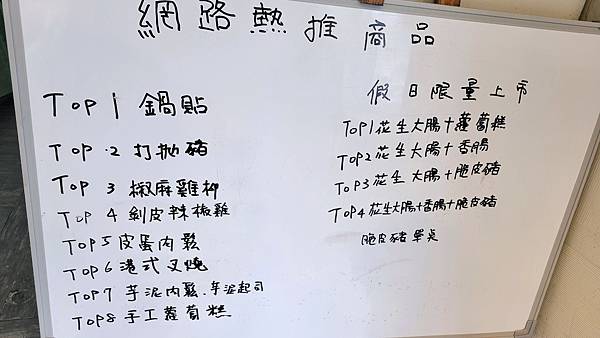 網路熱推商品
Top 1 鍋貼
Top.2 打拋豬
Top 3 椒麻雞柳
Top 4 剝皮辣椒雞
Top5 皮蛋肉鬆
Top6 港式叉燒
Top7 芋泥肉鬆.芋泥起司
Top8 手工蘿蔔糕
假日限量上市
Top1花生大腸+蘿蔔糕
Top2花生大腸+香腸
Top3花生大腸+脆皮豬
Top4花生大腸+香腸+脆皮豬
脆皮豬單點